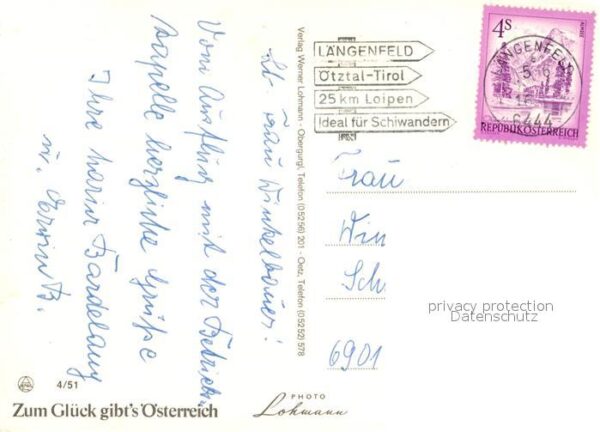 Lb. Frau Winkelbauer!
Vom Ausflug mit der Betriebs-
kapelle herzliche Grüße
Ihre Maria Bardelang
u. Erwin B.
Verlag Werner Lohmann · Obergurgl, Telefon (05256) 201 · Oetz, Telefon (05252) 578
LÄNGENFELD
Ötztal-Tirol
25 km Loipen
Ideal für Schiwandern
4S
ALMSEE
REPUBLIK ÖSTERREICH
LÄNGENFELD
6444
Frau
Win
Sch
6901
privacy protection
Datenschutz
4/51
Zum Glück gibt's Österreich
PHOTO
Lohmann